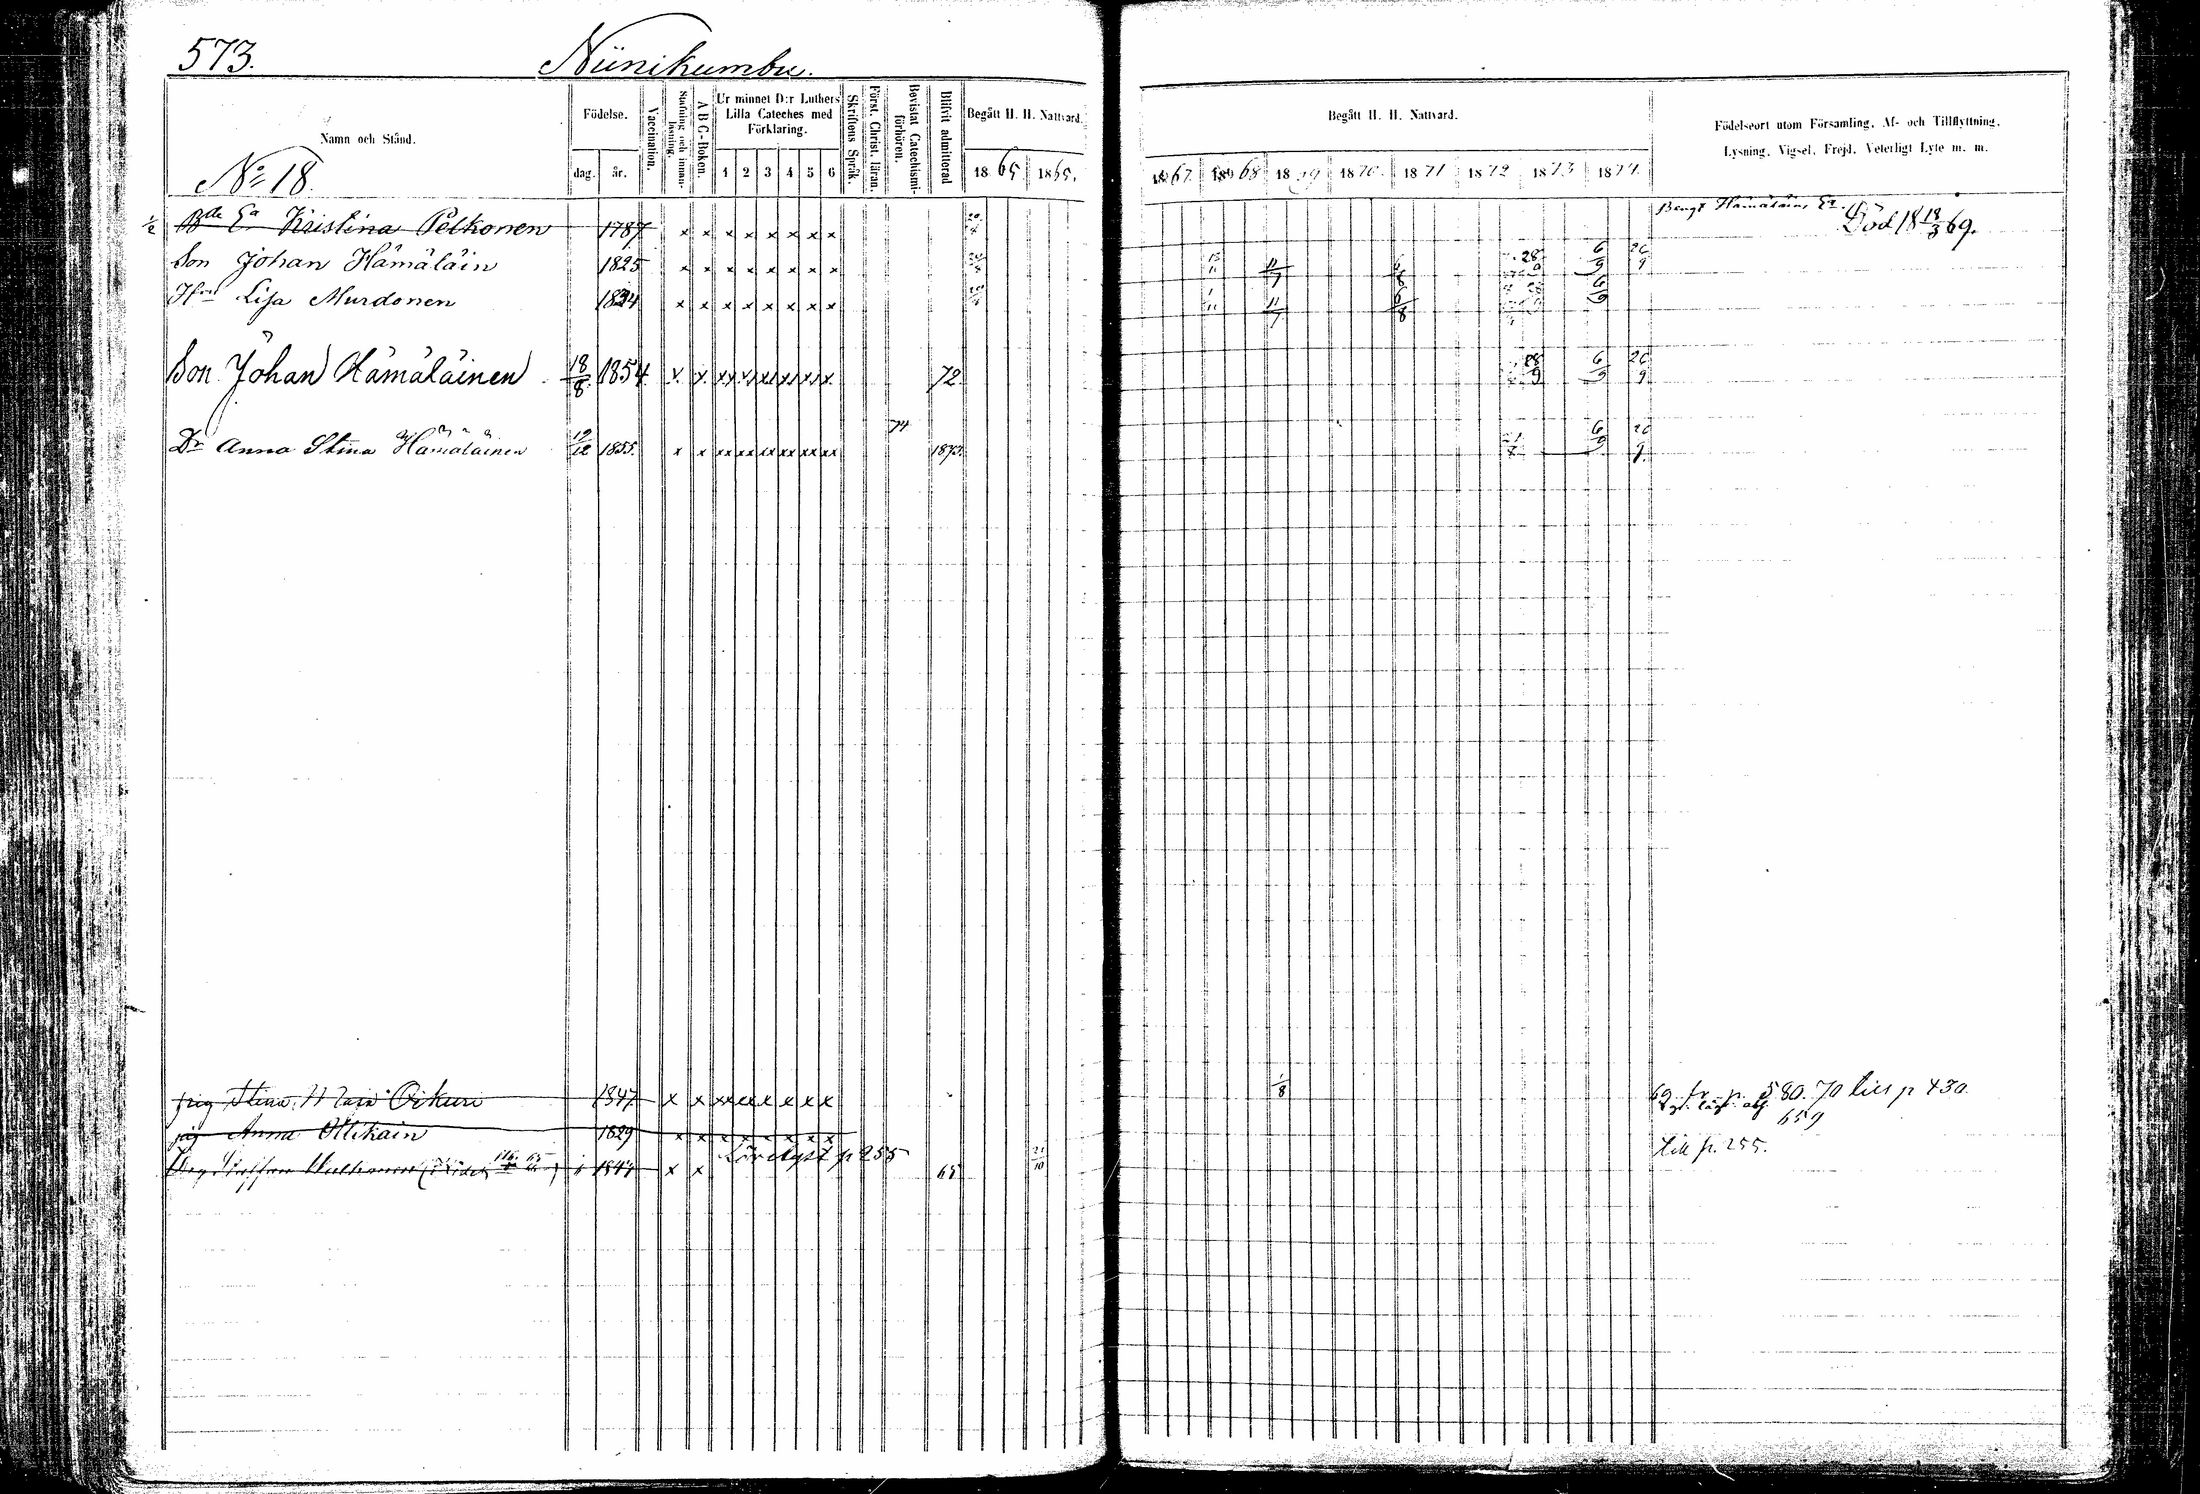 573. Niinikumbu.
Namn och Stånd. Födelse. Vaccination. Stafning och innan-läsning. A B C-Boken. Ur minnet D:r Luthers Lilla Cateches med Förklaring. Skriftens Språk. Först. Christ. läran. Bevistat Catechismi-förhören. Blifvit admitterad Begått H. H. Nattvard. Begått H. H. Nattvard. Födelseort utom Församling, Af- och Tillflyttning, Lysning, Vigsel, Frejd, Veterligt Lyte m. m.
dag. år. 1 2 3 4 5 6 1865 1865. 1867 1868 1869 1870. 1871 1872 1873 1874.
No 18.
1/2 Bde Ea Kristina Pelkonen 1787 x x x x x x x x Bengt Hämäläin Ea. Död 18 18/3 69.
Son Johan Hämäläin 1825 x x x x x x x x 11/7 28/9 6/9 26/9
Hru Lisa Murdonen 1824 x x x x x x x x 11/7 6/8 6/9
Son Johan Hämäläinen 18/8 1854 x x xx xx xx xx xx x 72 28/9 6/9 26/9
74
Dr Anna Stina Hämäläinen 19/12 1855. x x xx xx xx xx xx xx 1873. 6/9 26/9.
pig Stina Maia Oikuri 1847. x x xx xx x x x x 1/8 69 fr. p. 580. 70 till p 430.
659
pig Anna Ollikain 1829 x x x x x x x x
Lördagst p 255 till p. 255.
1844 x x 65 21/10